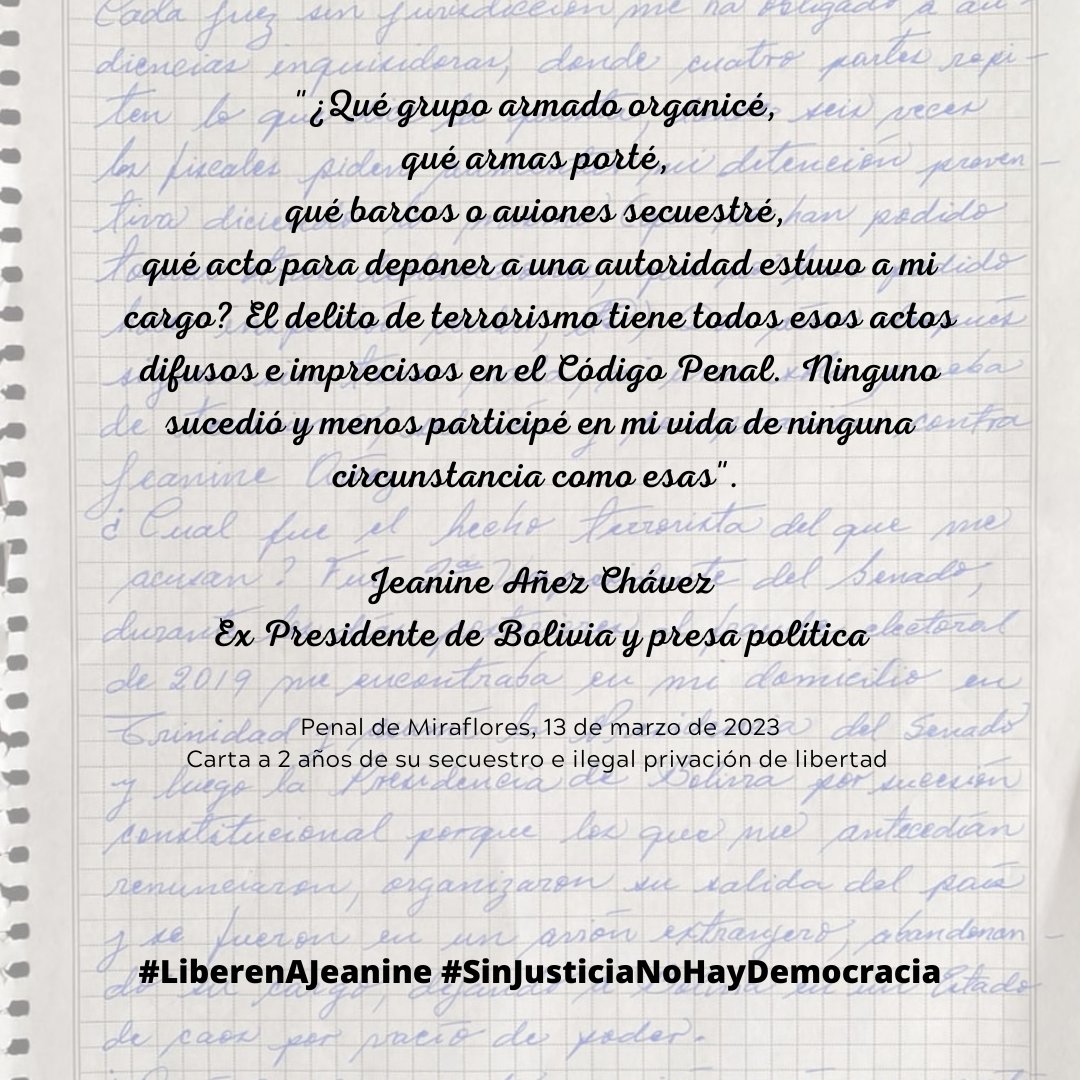 Cada juez sin jurisdicción me ha obligado a au-
diencias inquisidoras, donde cuatro partes repi-
ten lo
"¿Qué grupo armado organicé,
seis veces
qué armas porté,
los fiscales piden detención preven-
qué barcos o aviones secuestré,
tiva han podido
qué acto para deponer a una autoridad estuvo a mi
cargo? El delito de terrorismo tiene todos esos actos
difusos e imprecisos en el Código Penal. Ninguno
sucedió y menos participé en mi vida de ninguna
de contra
circunstancia como esas".
Jeanine
¿Cual fue el hecho terrorista del que me
acusan? del Senado,
Jeanine Añez Chávez
Ex Presidente de Bolivia y presa política
electoral
de 2019 me encontraba en mi domicilio en
Trinidad del Senado
Penal de Miraflores, 13 de marzo de 2023
Carta a 2 años de su secuestro e ilegal privación de libertad
y luego la Presidencia de Bolivia por sucesión
constitucional porque los que me antecedían
renunciaron, organizaron su salida del país
y se fueron en un avión extranjero, abandonan-
#LiberenAJeanine #SinJusticiaNoHayDemocracia
do su cargo, Estado
de caos por vacío de poder.